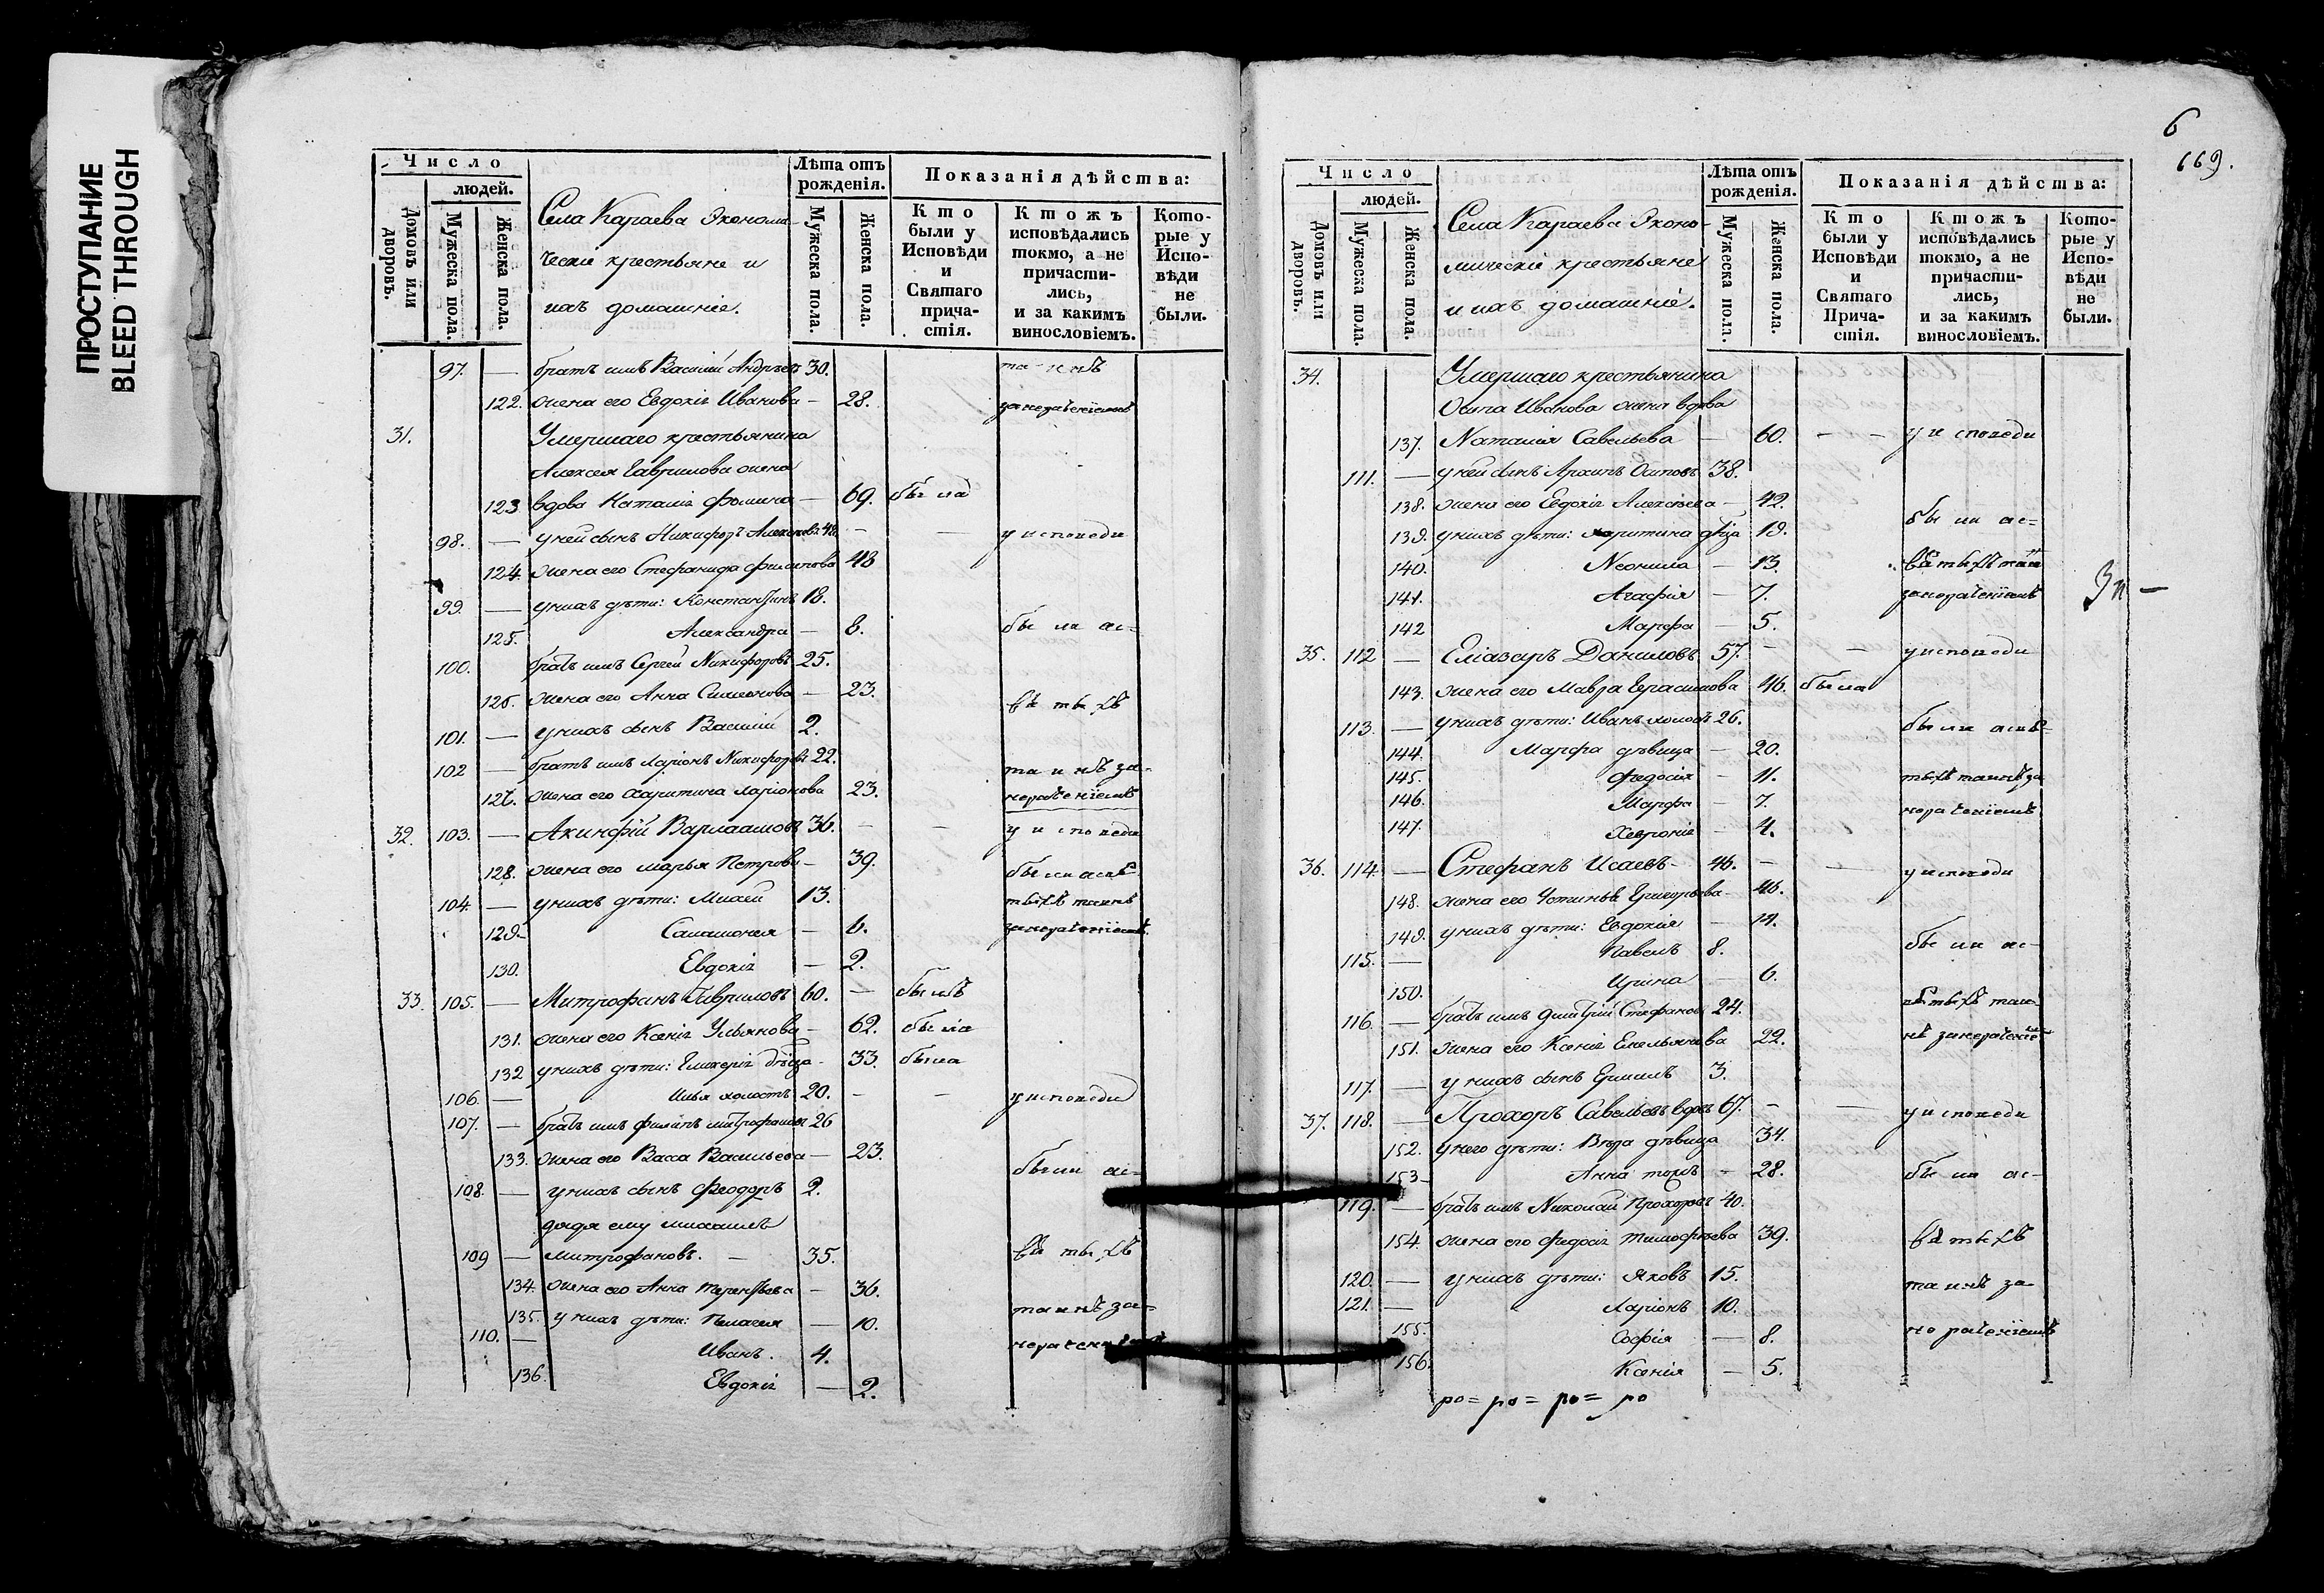 ПРОСТУПАНИЕ
BLEED THROUGH
Число
людей.
Домовъ или дворовъ.
Мужеска пола.
Женска пола.
Села Караева Экономи-
ческіе крестьяне и
ихъ домашніе.
Лѣта отъ рожденія.
Мужеска пола.
Женска пола.
Показанія дѣйства:
Кто были у Исповѣди и Святаго причастія.
Ктожъ исповѣдались токмо, а не причасти-лись, и за какимъ винословіемъ.
Кото-рые у Испо-вѣди не были.
97. — братъ имъ Василій Андреевъ 30. таинъ
122. жена его Евдокія Иванова — 28. занераченіемъ
31. Умершаго крестьянина
Алексея Гаврилова жена
123 вдова Наталія Фомина — 69. была
98. — у ней сынъ Никифоръ 48. — — у исповеди
124. жена его Стефанида Филипова 48
99. — у нихъ дѣти: Константинъ 18.
125. Александра — 8. были ас=
100. братъ имъ Сергей Никифоровъ 25.
126. жена его Анна Симеонова — 23. вѣтыхъ
101. — у нихъ сынъ Василій 2.
102 — братъ имъ Ларіонъ Никифоровъ 22. таинъ за-
жена его Харитина Ларіонова 23. нераченіемъ
32. 103. — Акинфій Варлаамовъ 36. — — у исповеди
128. жена его Марья Петрова — 39. были асвѣ
104. — у нихъ дѣти: 13. тыхъ таинъ
129. Саламонея — 6. занераченіемъ
130. Евдокія — 2.
33. 105. — Митрофанъ Гавриловъ 60. — былъ
131. жена его Ксенія Ульянова — 62. была
132 у нихъ дѣти: Гликерія дѣвца — 33. была
106. — Илья холостъ 20. — — у исповеди
107. — братъ имъ Филипъ Митрофановъ 26
133. жена его Васса Васильева — 23. были ас=
108. — у нихъ сынъ Феодоръ 2.
дядя ему Михаилъ
109 — Митрофановъ. — 35. вѣтыхъ
134. жена его Анна Терентьева — 36.
135. у нихъ дѣти: Пелагея — 10. таинъ за=
110. — Иванъ. 4. нераченіемъ
136. Евдокія — 2.
6
169.
Число
людей.
Домовъ или дворовъ.
Мужеска пола.
Женска пола.
Села Караева Эконо-
мическіе крестьяне
и ихъ домашніе.
Лѣта отъ рожденія.
Мужеска пола.
Женска пола.
Показанія дѣйства:
Кто были у Исповѣди и Святаго Прича-стія.
Ктожъ исповѣдались токмо, а не причасти-лись, и за какимъ винословіемъ.
Кото-рые у Испо-вѣди не были.
34. Умершаго крестьянина
Осипа Иванова жена вдова
137. Наталія Савельева — 60. — — у исповеди
111. — у ней сынъ Архипъ Осиповъ 38.
138. жена его Евдокія Алексѣева — 42.
139. у нихъ дѣти: Харитина дѣвца 19. были ас=
140. Неонила — 13. вѣтыхъ таи
141. Агафія — 7. занераченіемъ
142 Марфа — 5.
35. 112 — Еліазаръ Даниловъ 57. — — у исповеди
143. жена его Мавра Герасимова 46. была
113. — у нихъ дѣти: Иванъ холостъ 26. были асвѣ-
144. Марфа дѣвица — 20.
145. Федосія — 11. тыхъ таинъ за
146. Марфа — 7.
147. Хеврония — 4. нераченіемъ
36. 114. — Стефанъ Исаевъ — 46. — — у исповеди
148. жена его Устинья Григорьева — 46.
149. у нихъ дѣти: Евдокія —
115. — Павелъ 8. были ас-
150. Ирина — 6.
116. — братъ имъ Дмитрій Стефановъ 24. вѣтыхъ таи-
151. жена его Ксенія Емельянова 22. нъ занераченіе
117. — у нихъ сынъ 3.
37. 118. — Прохоръ Савельевъ вдовъ 67. — — у исповеди
152. у него дѣти: Вѣра дѣвица 34.
153 Анна тожъ — 28. были ас-
119. — братъ имъ Николай Прохоровъ 40.
154. жена его Федора Тимофѣева 39. вѣтыхъ
120. — у нихъ дѣти: Яковъ 15. таинъ за-
121. — Ларіонъ 10.
155. Софія — 8. нераченіемъ
156. Ксенія — 5.
ро= ро= ро= ро